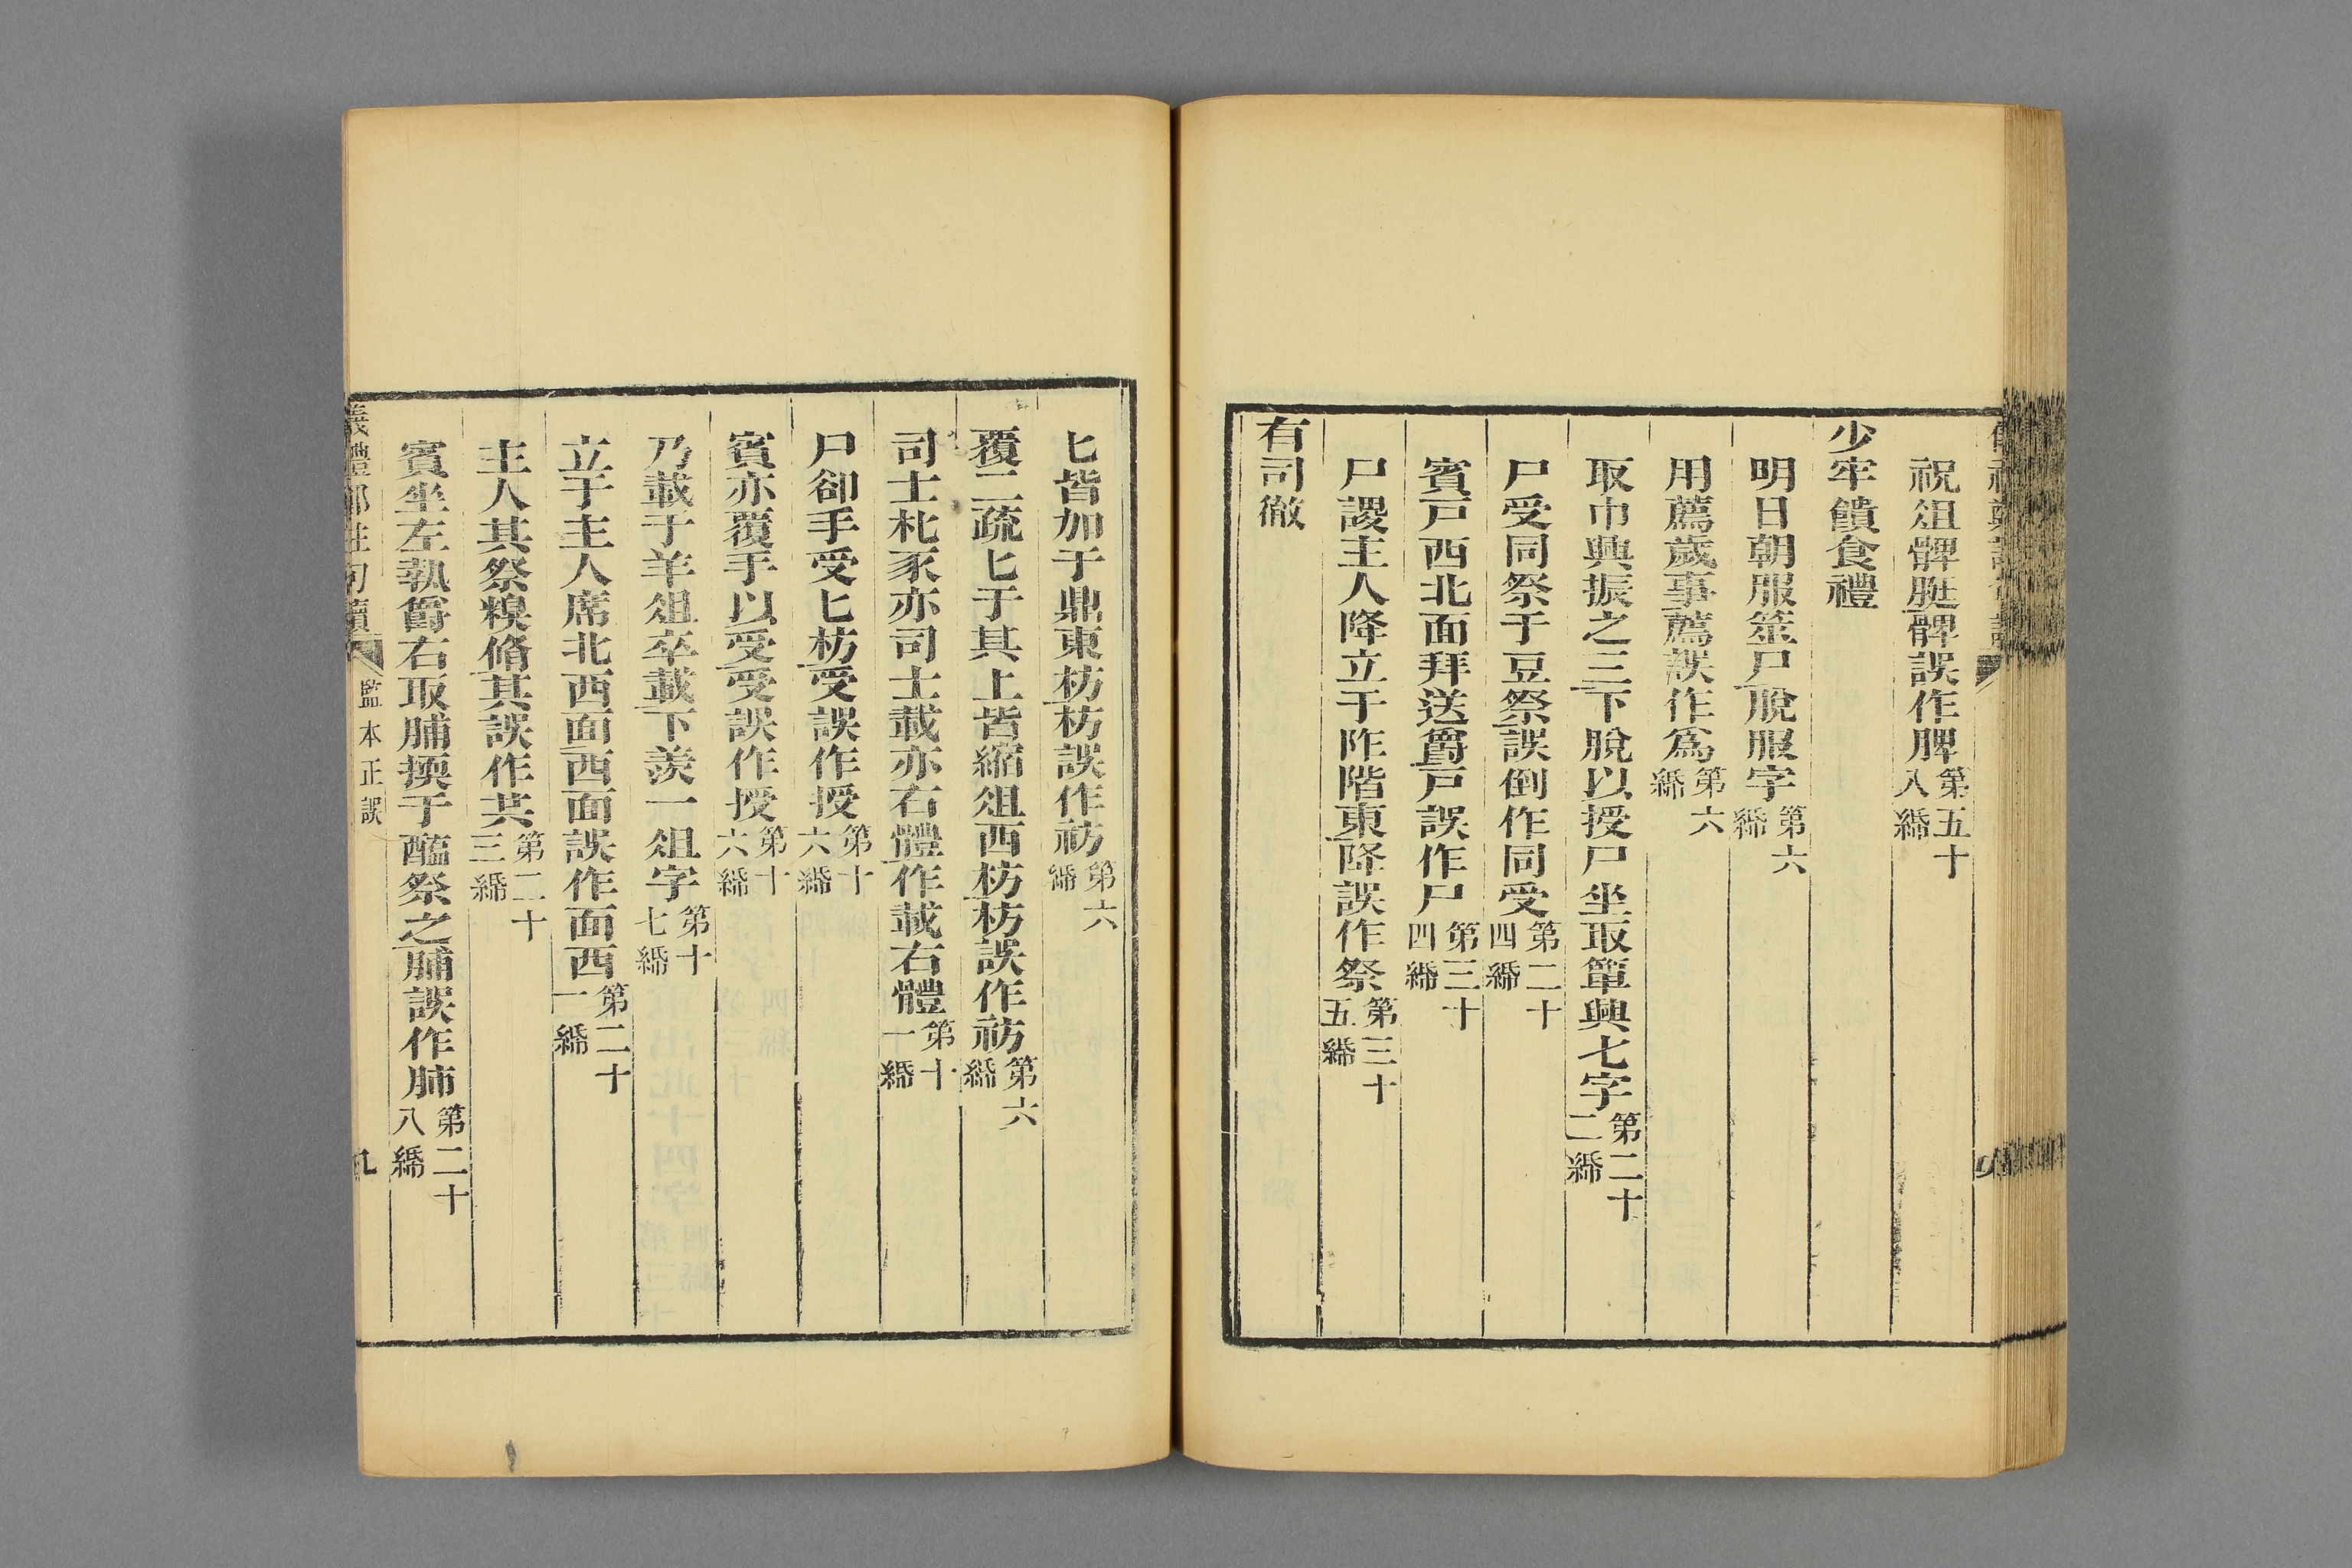 祝俎髀脡髀誤作脾第五十八緉
少牢饋食禮
明日朝服筮尸脫服字第六緉
用薦歲事薦誤作爲第六緉
取巾興振之三下脫以授尸坐取簞興七字第二十二緉
尸受同祭于豆祭誤倒作同受第二十四緉
賓戸西北面拜送爵戸誤作尸第三十四緉
尸謖主人降立于阼階東降誤作祭第三十五緉
有司徹
匕皆加于鼎東枋枋誤作祊第六緉
覆二疏匕于其上皆縮俎西枋枋誤作祊第六緉
司士朼豕亦司士載亦右體作載右體第十一緉
尸卻手受匕枋受誤作授第十六緉
賓亦覆手以受受誤作授第十六緉
乃載于羊俎卒載下羨一俎字第十七緉
立于主人席北西面西面誤作面西第二十一緉
主人其祭糗脩其誤作共第二十三緉
賓坐左執爵右取脯擩于醢祭之脯誤作肺第二十八緉
儀禮鄭註句讀 監本正誤 九